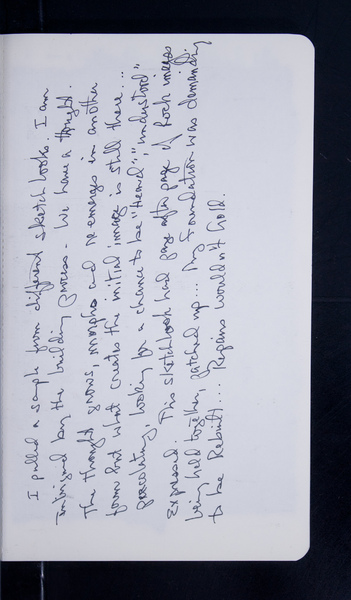 I pulled a sample from different sketchbooks. I am
intrigued by the building process - We have a thought.
The thought grows, morphs and re-emerges in another
form but what creates the initial image is still there...
percolating, looking for a chance to be "Heard", "understood"
Expressed. This sketchbook had page after page of rock images
being held together, patched up... My Foundation was demanding
to be Rebuilt.... Repairs wouldn't hold.